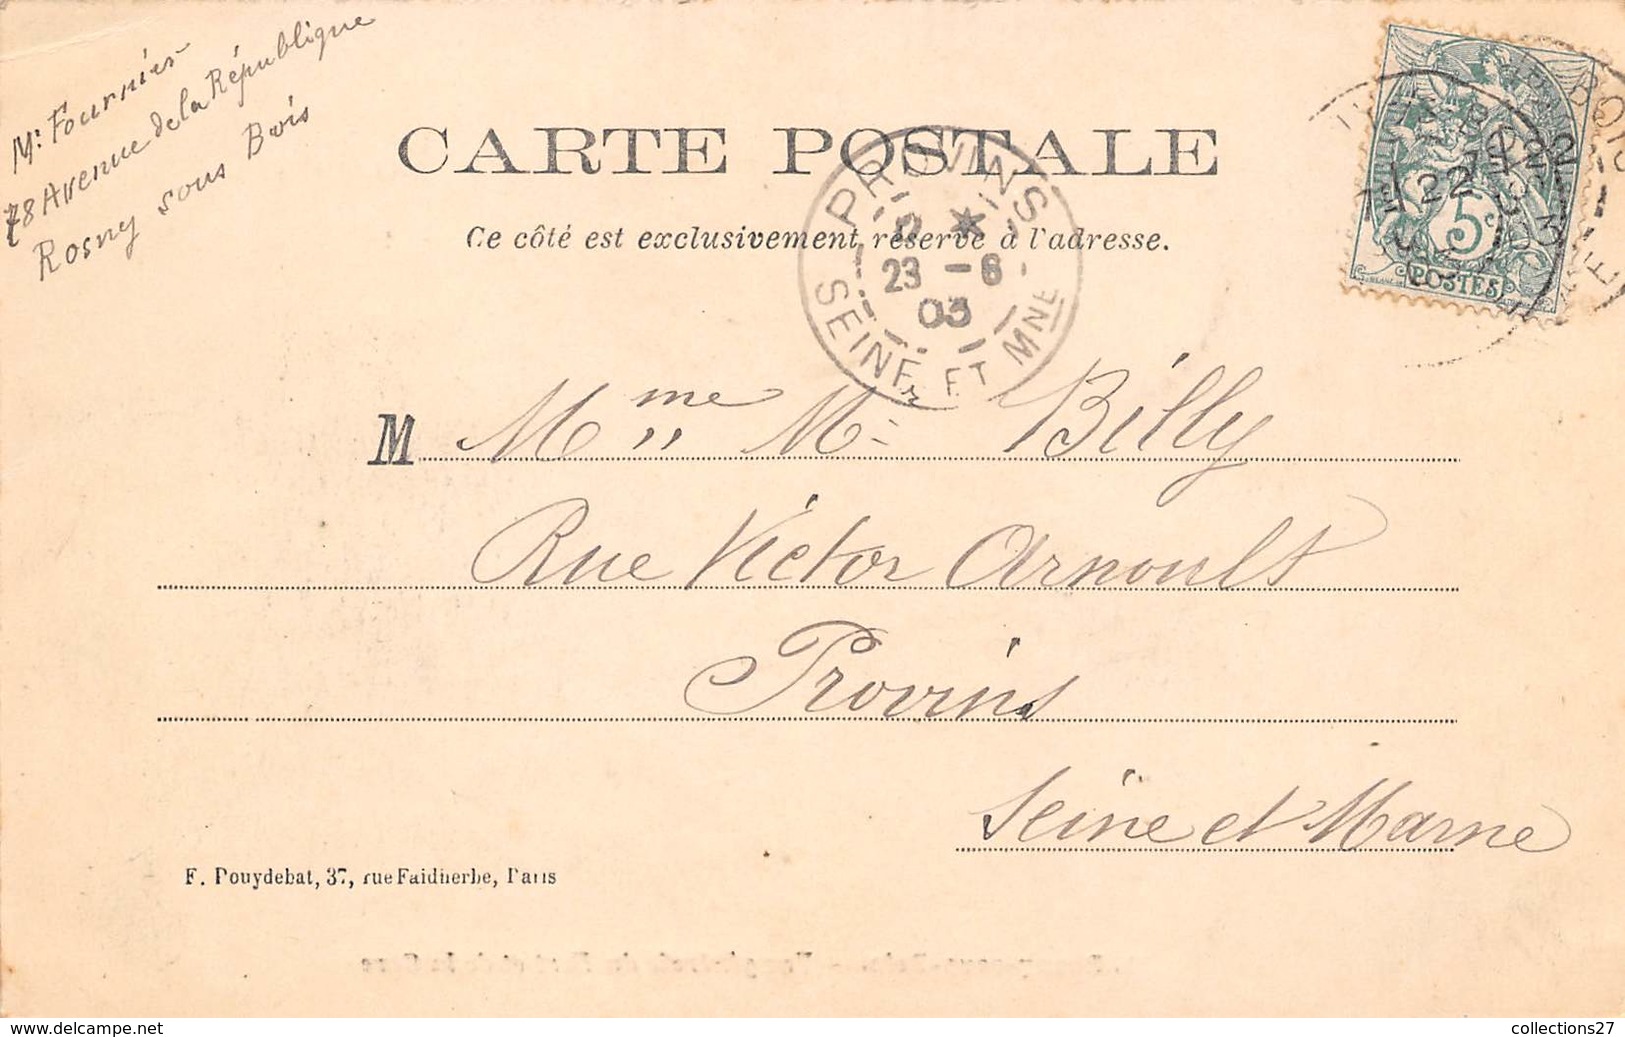 Mr Fournier
78 Avenue de la République
Rosny sous Bois
CARTE POSTALE
Ce côté est exclusivement réservé à l'adresse.
PROVINS
23 - 6
03
SEINE ET MNE
BOIS
22
5c
POSTES
M Mme Mr Billy
Rue Victor Arnoult
Provins
Seine et Marne
F. Pouydebat, 37, rue Faidherbe, Paris
www.delcampe.net
collections27